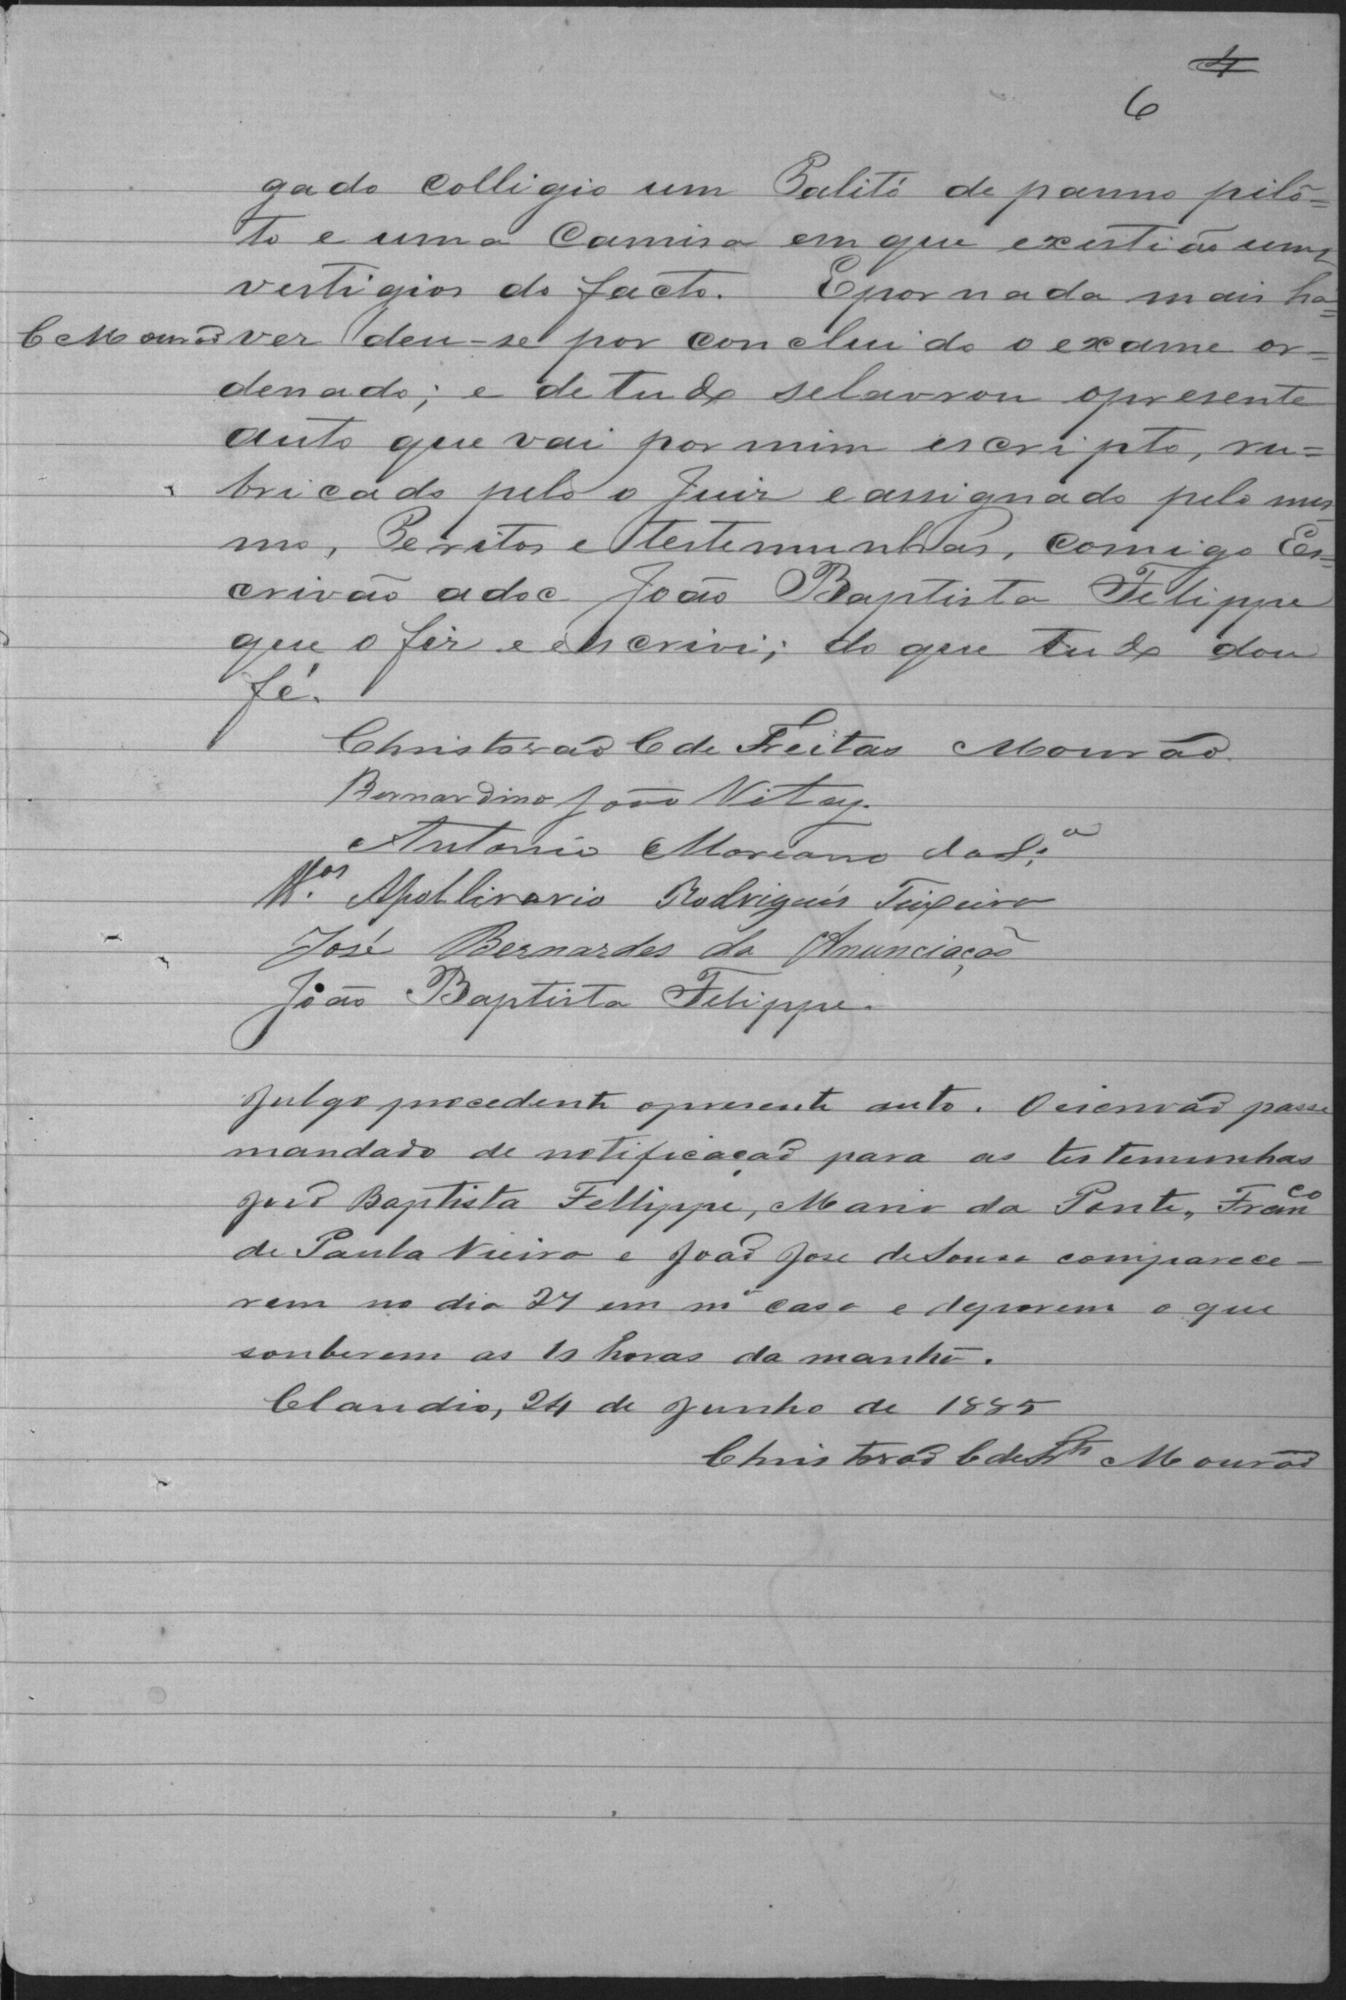 4
6
gado colligio um Palitó de panno pilô=
to e uma Camisa em que existião uns
vestigios do facto. E por nada mais ha=
C Mourão
ver deu-se por concluido o exame or=
denado; e de tudo se lavrou o presente
auto que vai por mim escripto, ru=
bricado pelo o Juiz e assignado pelo mes
mo, Peritos e testemunhas, comigo Es=
crivão adoc João Baptista Felippe
que o fiz e escrivi; do que tudo dou
fé.
Christovaõ C de Freitas Mourão
Bernardino João Vitoy.
Antonio Marciano da S.ª
Apollinario Rodrigues Teixeira
José Bernardes da Anunciação
João Baptista Felippe.
Julgo procedente o presente auto. O escrivaõ passe
mandado de notificaçaõ para as testemunhas
Joaõ Baptista Fellippe, Maria da Ponte, Franco
de Paula Vieira e Joaõ Jose de Sousa comparece-
rem no dia 27 em mª casa e deporem o que
souberem as 10 horas da manhã.
Claudio, 24 de Junho de 1885
Christovaõ C de Fts Mourão